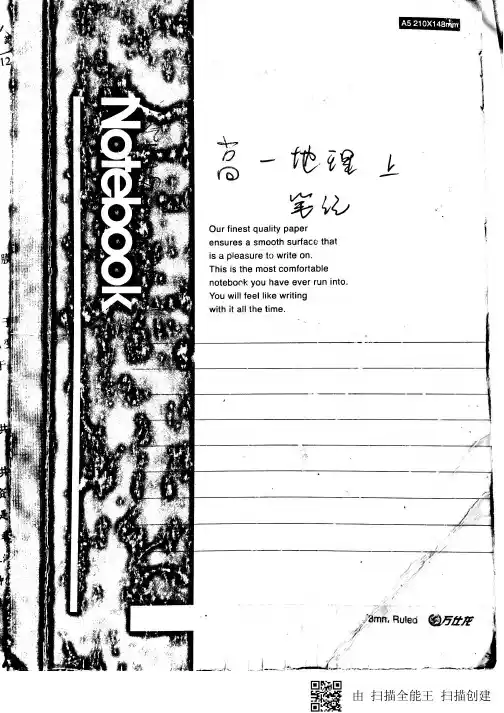 A5 210X148mm
Notebook
高一地理上
笔记
Our finest quality paper
ensures a smooth surface that
is a pleasure to write on.
This is the most comfortable
notebook you have ever run into.
You will feel like writing
with it all the time.
8mm. Ruled 万仕龙
由 扫描全能王 扫描创建